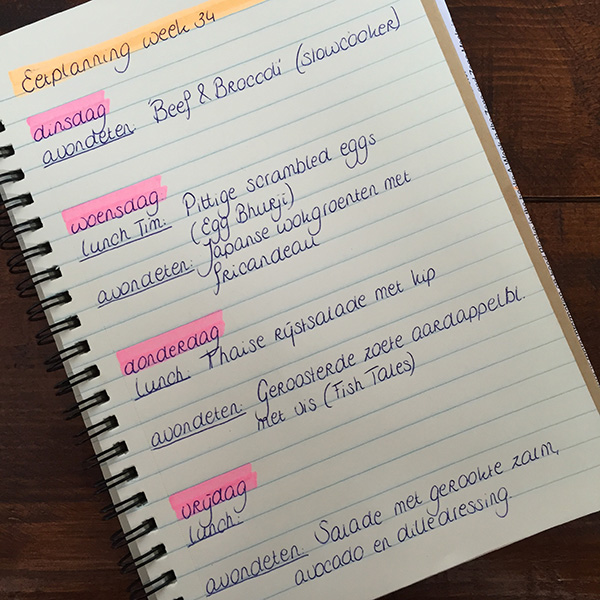 Eetplanning week 34
dinsdag
avondeten: 'Beef & Broccoli' (slowcooker)
woensdag
lunch Tim: Pittige scrambled eggs
(Egg Bhurji)
avondeten: Japanse wokgroenten met
fricandeau
donderdag
lunch: Thaise rijstsalade met kip
avondeten: Geroosterde zoete aardappelbl.
met vis (Fish Tales)
vrijdag
lunch:
avondeten: Salade met gerookte zalm,
avocado en dilledressing.